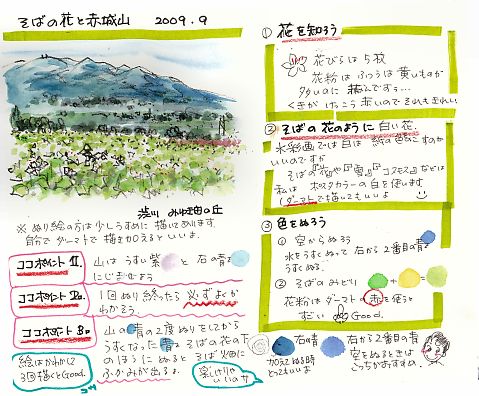 そばの花と赤城山 2009.9
渋川 みゆき田の丘
※ ぬり絵の方は少しうすめに描いてあります
自分でダーマトで描き加えるといいよ。
ココポイント
山はうすい紫 と 石の青
にじませよう
ココポイント
1回ぬり終ったら 必ずよくか
わかそう。
ココポイント
山の 青の2度ぬりをしてから
うすくなった青を そばの花の下
のほうに ぬると そば畑に
ふかみが出るよ。
絵はかわかして
3回描くとGood.
コツ
楽しけりゃ
いいのサ
① 花を知ろう
花びらは5枚
花粉は ふつうは 黄いものが
多いのに
くきが けっこう 赤いので それもきれい
② そばの花のように白い花.
水彩画では白は 紙の色をのこすのが
いいのですが
そばの『花』や『雪』『コスモス』などは
私は ポスタカラーの白を使います
(ダーマトで描いてもいいよ
③ 色をぬろう
① 空からぬろう
水をうすくぬって 右から2番目の青
うすくぬる
② そばのみどり + =
花粉はダーマトの赤を使うと
すごい Good.
右から2番目の青
空をぬるときは
こっちがおすすめ